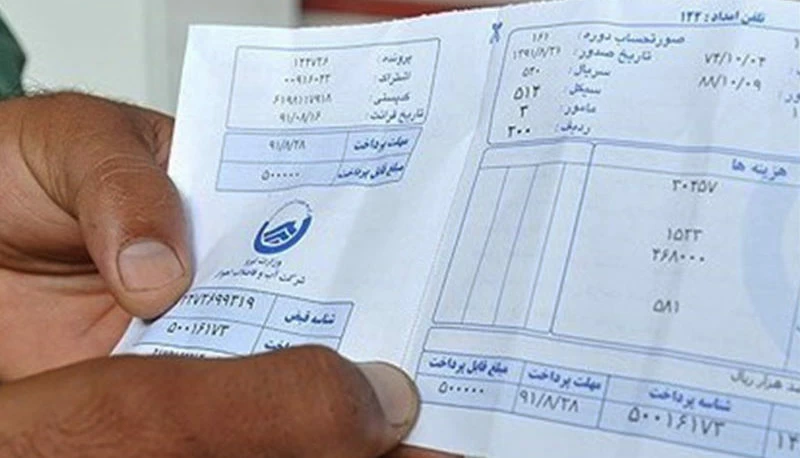 تلفن امداد: ۱۲۲
صورتحساب دوره: ۱۶۱
تاریخ صدور: ۱۳۹۱/۸/۲۱
سریال: ۵۴۰
سیکل: ۵۱۲
مامور: ۳
ردیف: ۳۰۰
۷۴/۱۰/۰۴
۸۸/۱۰/۰۹
هزینه ها
۳۰۴۵۷
۱۵۲۳
۴۶۸۰۰۰
۵۸۱
هزار ریال
شناسه پرداخت مهلت پرداخت مبلغ قابل پرداخت
۵۰۰۱۶۱۷۳ ۹۱/۸/۲۸ ۵۰۰۰۰۰
پرونده: ۱۲۴۷۲۶
اشتراک: ۰۰۹۱۶۰۴۳
کدپستی: ۶۱۹۸۱۱۷۹۱۸
تاریخ قرائت: ۹۱/۰۸/۱۶
مهلت پرداخت ۹۱/۸/۲۸
مبلغ قابل پرداخت ۵۰۰۰۰۰
وزارت نیرو
شرکت آب و فاضلاب اهواز
شناسه قبض
پرداخت ۵۰۰۱۶۱۷۳